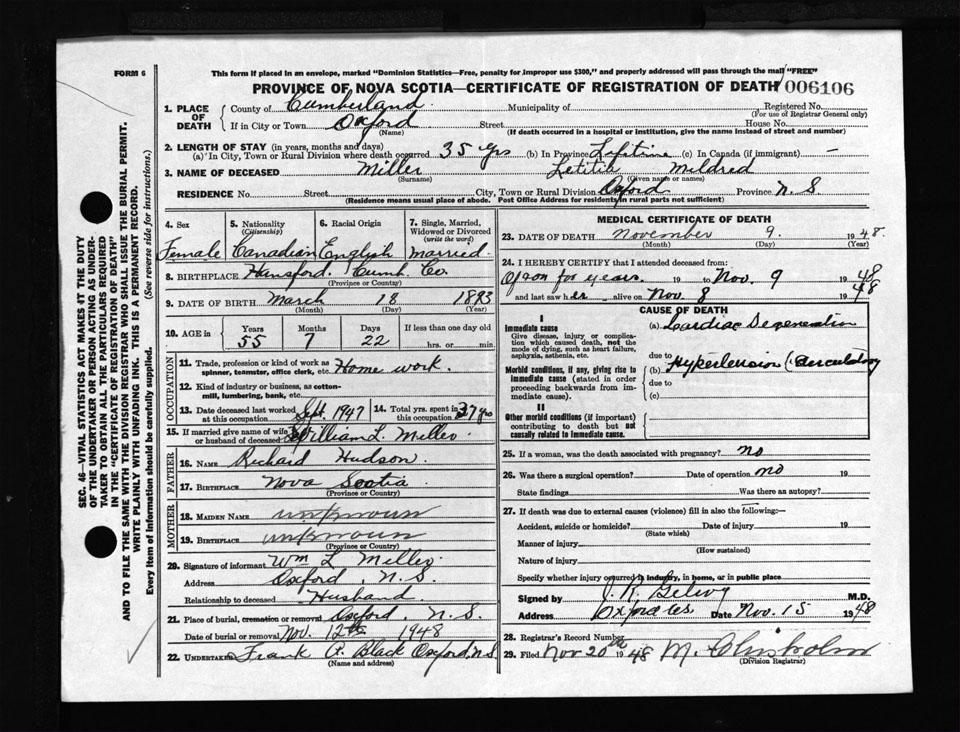 FORM 6
This form if placed in an envelope, marked "Dominion Statistics—Free, penalty for improper use $300," and properly addressed will pass through the mail "FREE"
PROVINCE OF NOVA SCOTIA—CERTIFICATE OF REGISTRATION OF DEATH 006106
1. PLACE OF DEATH
County of Cumberland Municipality of Registered No.
(For use of Registrar General only)
If in City or Town Oxford Street House No.
(Name) (If death occurred in a hospital or institution, give the name instead of street and number)
2. LENGTH OF STAY (in years, months and days)
(a) In City, Town or Rural Division where death occurred 35 yrs (b) In Province Lifetime (c) In Canada (if immigrant) —
3. NAME OF DECEASED Miller Letitia Mildred
(Surname) (Given name or names)
RESIDENCE No. Street City, Town or Rural Division Oxford Province N. S.
(Residence means usual place of abode. Post Office Address for residents in rural parts not sufficient)
4. Sex Female
5. Nationality (Citizenship) Canadian
6. Racial Origin English
7. Single, Married, Widowed or Divorced (write the word) Married
8. BIRTHPLACE Hansford. Cumb. Co.
(Province or Country)
9. DATE OF BIRTH March 18 1893
(Month) (Day) (Year)
10. AGE in Years 55 Months 7 Days 22 If less than one day old hrs. or min.
OCCUPATION
11. Trade, profession or kind of work as spinner, teamster, office clerk, etc. Home work.
12. Kind of industry or business, as cotton-mill, lumbering, bank, etc.
13. Date deceased last worked at this occupation Sept 1947
14. Total yrs. spent in this occupation 37 yrs
15. If married give name of wife or husband of deceased William L. Miller
FATHER
16. NAME Richard Hudson
17. BIRTHPLACE Nova Scotia
(Province or Country)
MOTHER
18. MAIDEN NAME unknown
19. BIRTHPLACE unknown
(Province or Country)
20. Signature of informant Wm L Miller
Address Oxford, N. S.
Relationship to deceased Husband
21. Place of burial, cremation or removal Oxford, N. S.
Date of burial or removal Nov. 12th 1948
22. UNDERTAKER Frank A. Black Oxford, N.S.
(Name and address)
MEDICAL CERTIFICATE OF DEATH
23. DATE OF DEATH November 9. 1948.
(Month) (Day) (Year)
24. I HEREBY CERTIFY that I attended deceased from:
Of son for years. 19 to Nov. 9 1948
and last saw her alive on Nov. 8 1948
CAUSE OF DEATH
I
Immediate cause
Give disease, injury or complication which caused death, not the mode of dying, such as heart failure, asphyxia, asthenia, etc.
(a) Cardiac Degeneration
due to
Morbid conditions, if any, giving rise to immediate cause (stated in order proceeding backwards from immediate cause).
(b) Hypertension
due to
(c)
II
Other morbid conditions (if important) contributing to death but not causally related to immediate cause.
25. If a woman, was the death associated with pregnancy? no
26. Was there a surgical operation? Date of operation no 19
State findings Was there an autopsy?
27. If death was due to external causes (violence) fill in also the following:—
Accident, suicide or homicide? Date of injury 19
(State which)
Manner of injury
(How sustained)
Nature of injury
Specify whether injury occurred in industry, in home, or in public place
Signed by M.D.
Address Date Nov. 15 1948
28. Registrar's Record Number
29. Filed Nov 20th 1948 M. Chisholm
(Division Registrar)
SEC. 46—VITAL STATISTICS ACT MAKES IT THE DUTY
OF THE UNDERTAKER OR PERSON ACTING AS UNDER-
TAKER TO OBTAIN ALL THE PARTICULARS REQUIRED
IN THE "CERTIFICATE OF REGISTRATION OF DEATH"
AND TO FILE THE SAME WITH THE DIVISION REGISTRAR WHO SHALL ISSUE THE BURIAL PERMIT.
WRITE PLAINLY WITH UNFADING INK. THIS IS A PERMANENT RECORD.
Every item of information should be carefully supplied. (See reverse side for instructions.)